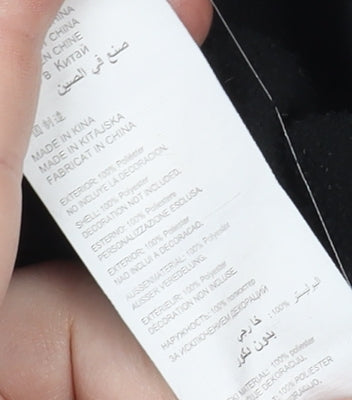 KINA
CHINA
EN CHINE
В Китай
صنع في الصين
国制造
MADE IN KINA
MADE IN KITAJSKA
FABRICAT IN CHINA
EXTERIOR: 100% Poliéster
NO INCLUYE LA DECORACIÓN.
SHELL: 100% Polyester
DECORATION NOT INCLUDED.
ESTERNO: 100% Poliestere
PERSONALIZZAZIONE ESCLUSA
EXTERIOR: 100% Poliéster
NÃO INCLUI A DECORAÇÃO.
AUSSENMATERIAL: 100% Polyester
AUSSER VEREDELUNG.
EXTERIEUR: 100% Polyester
DÉCORATION NON INCLUSE
НАРУЖНОСТЬ: 100% полиэстер
ЗА ИСКЛЮЧЕНИЕМ ДЕКОРАЦИЙ
خارجي : 100% البوليستر
بدون ديكور
MATERIAL: 100% poliester
DEKORACJI.
100% POLIESTER